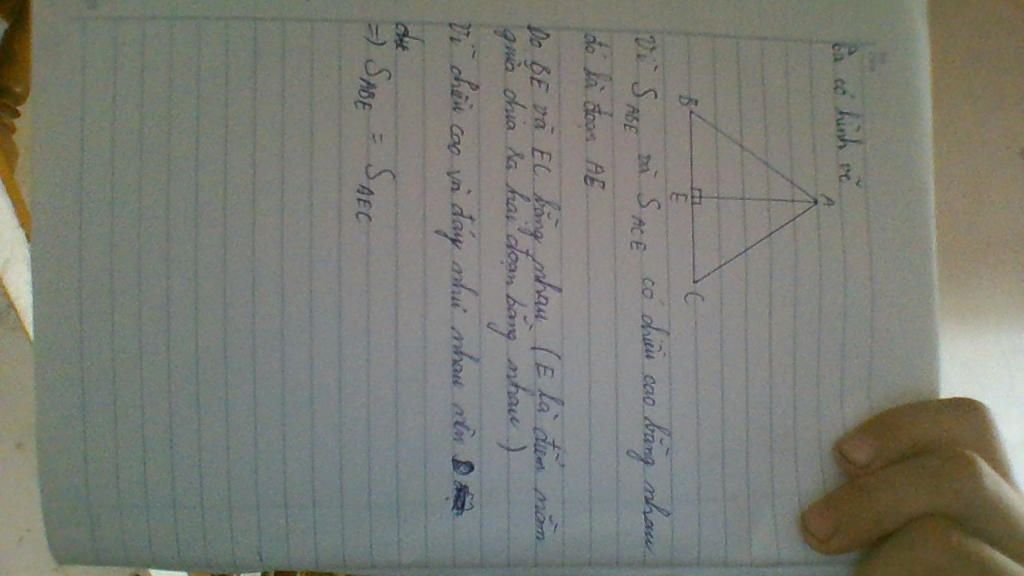 Ta có hình vẽ
A
B
E
C
Vì S ABE và S ACE có chiều cao bằng nhau
đó là đoạn AE
Do BE và EC bằng nhau (E là điểm nằm
giữa chia ra hai đoạn bằng nhau)
Vì chiều cao và đáy như nhau nên
=> S ABE = S AEC